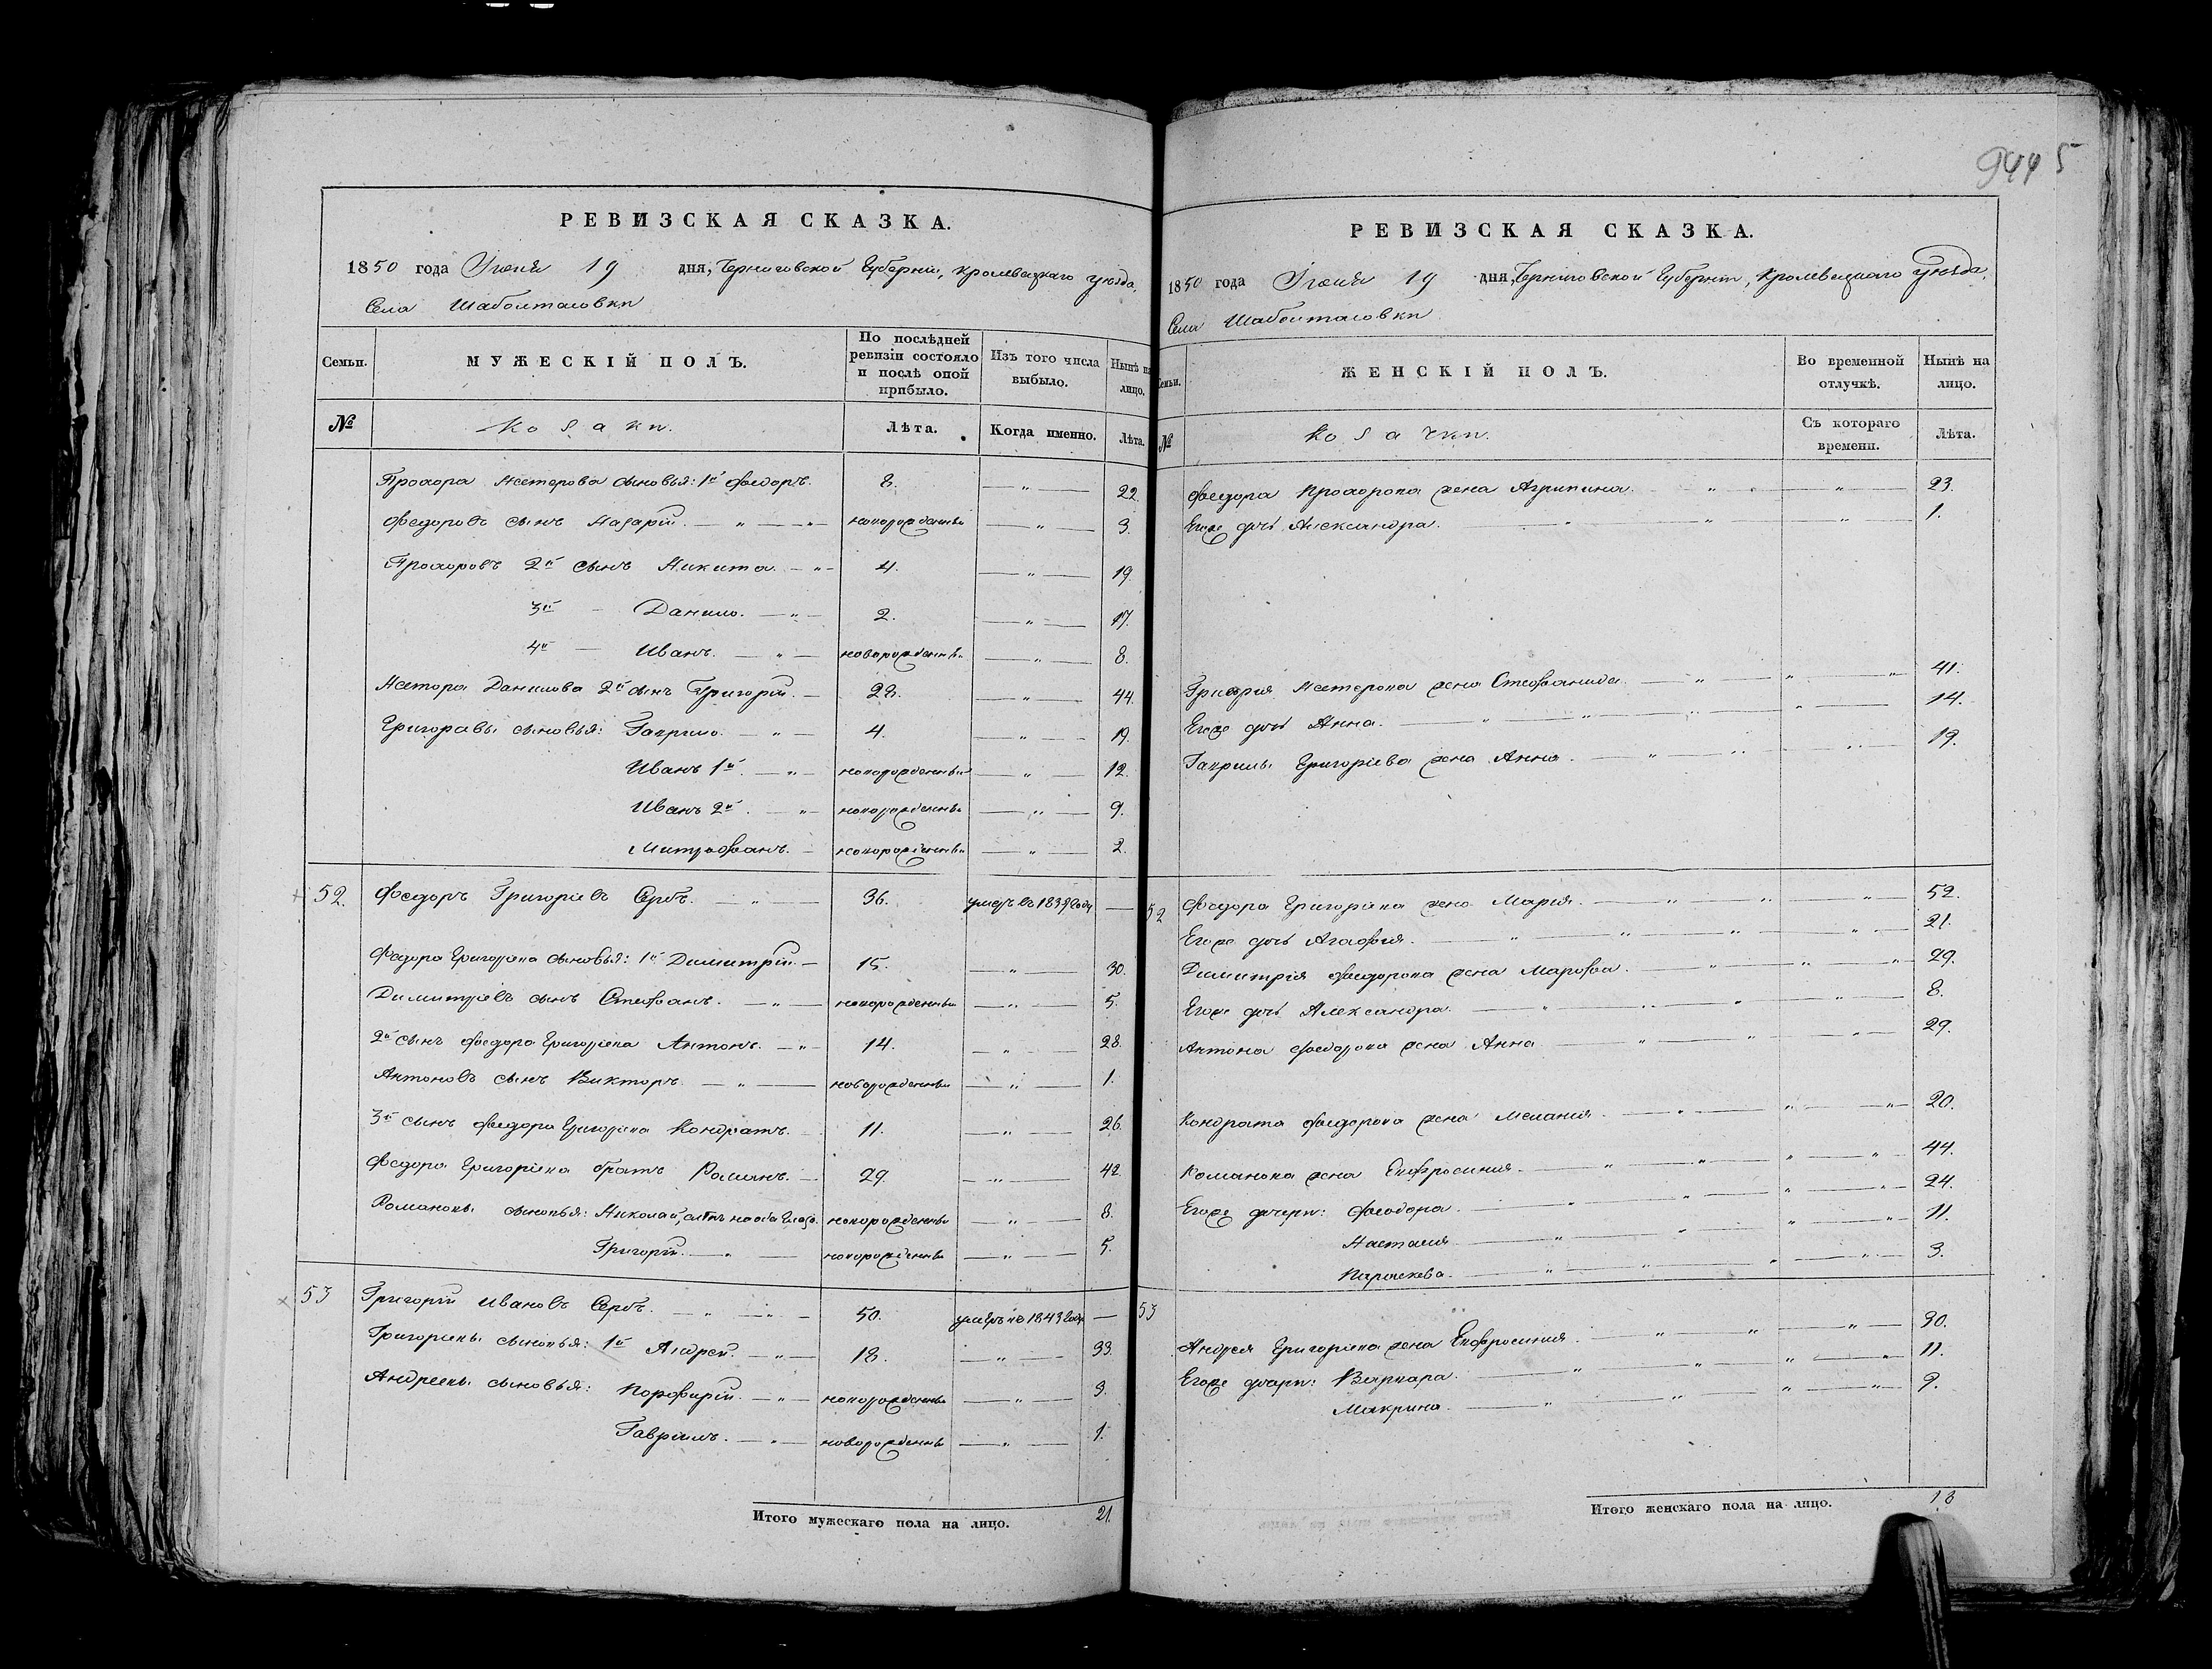 944 5
РЕВИЗСКАЯ СКАЗКА.
1850 года Іюня 19 дня, Черниговской Губерніи, Кролевецкаго уѣзда,
Села Шабалтасовки
Семьи. МУЖЕСКІЙ ПОЛЪ. По послѣдней ревизіи состояло и послѣ оной прибыло. Изъ того числа выбыло. Нынѣ на лицо.
№ Козаки. Лѣта. Когда именно. Лѣта.
Прохора Нестерова сыновья: 1й Федоръ. 8. — " — 22.
Федоровъ сынъ Назарій. — " — " новорожденный — " — 3.
Прохоровъ 2й сынъ Никита — " — 4. — " — 19.
3й — Данило. — " — 2. — " — 17.
4й — Иванъ. — " — новорожденный — " — 8.
Нестора Данилова 2й сынъ Григорій. — 28. — " — 44.
Григоровы сыновья: Гаврило. — " — 4. — " — 19.
Иванъ 1й. — " — новорожденный — " — 12.
Иванъ 2й. — " — новорожденный — " — 9.
Митрофанъ. — новорожденный — " — 2.
52. Федоръ Григоріевъ Сербъ. — " — 36. умеръ въ 1839 году —
Федора Григоріева сыновья: 1й Димитрій. — 15. — " — 30.
Димитріевъ сынъ Стефанъ. — " — новорожденный — " — 5.
2й сынъ Федора Григоріева Антонъ. — " — 14. — " — 28.
Антоновъ сынъ Викторъ. — " — новорожденный — " — 1.
3й сынъ Федора Григоріева Кондратъ. — 11. — " — 26.
Федора Григоріева братъ Романъ. — 29. — " — 42.
Романовы сыновья: Николай, слѣпъ на оба глаза. новорожденный — " — 8.
Григорій. — " — новорожденный — " — 5.
53 Григорій Ивановъ Сербъ. — " — " — 50. умеръ въ 1843 году —
Григоріевы сыновья: 1й Андрей. — " — 18. — " — 33.
Андреевы сыновья: Порфирій. — " — новорожденный — " — 3.
Гавріилъ. — " — новорожденный — " — 1.
Итого мужескаго пола на лицо. 21.
РЕВИЗСКАЯ СКАЗКА.
1850 года Іюня 19 дня, Черниговской Губерніи, Кролевецкаго уѣзда,
Села Шабалтасовки
Семьи. ЖЕНСКІЙ ПОЛЪ. Во временной отлучкѣ. Нынѣ на лицо.
№ Козачки. Съ котораго времени. Лѣта.
Федора Прохорова жена Агрипина. " — " — 23.
Егоже дочь Александра. " " — " — 1.
Григорія Нестерова жена Стефанида. — " — " — " 41.
Егоже дочь Анна. — " — " — " — " — 14.
Гаврилы Григоріева жена Анна. — " — " — " — 19.
52 Федора Григоріева жена Марія. — " — " — " — 52.
Егоже дочь Агафія. — " — " — " — " — 21.
Димитрія Федорова жена Марфа. — " — " — " 29.
Егоже дочь Александра. — " — " — " — " — 8.
Антона Федорова жена Анна — " — " — " — 29.
Кондрата Федорова жена Меланія. — " — " — " 20.
Романова жена Евфросинія. — " — " — " — " 44.
Егоже дочери: Феодора. — " — " — " — " 24.
Настасія — " — " — " — " 11.
Параскева. — " — " — " — " 3.
53
Андрея Григоріева жена Евфросинія. — " — " — " — 30.
Егоже дочери: Варвара. — " — " — " — " 11.
Макрина. — " — " — " — " 9.
Итого женскаго пола на лицо. 18